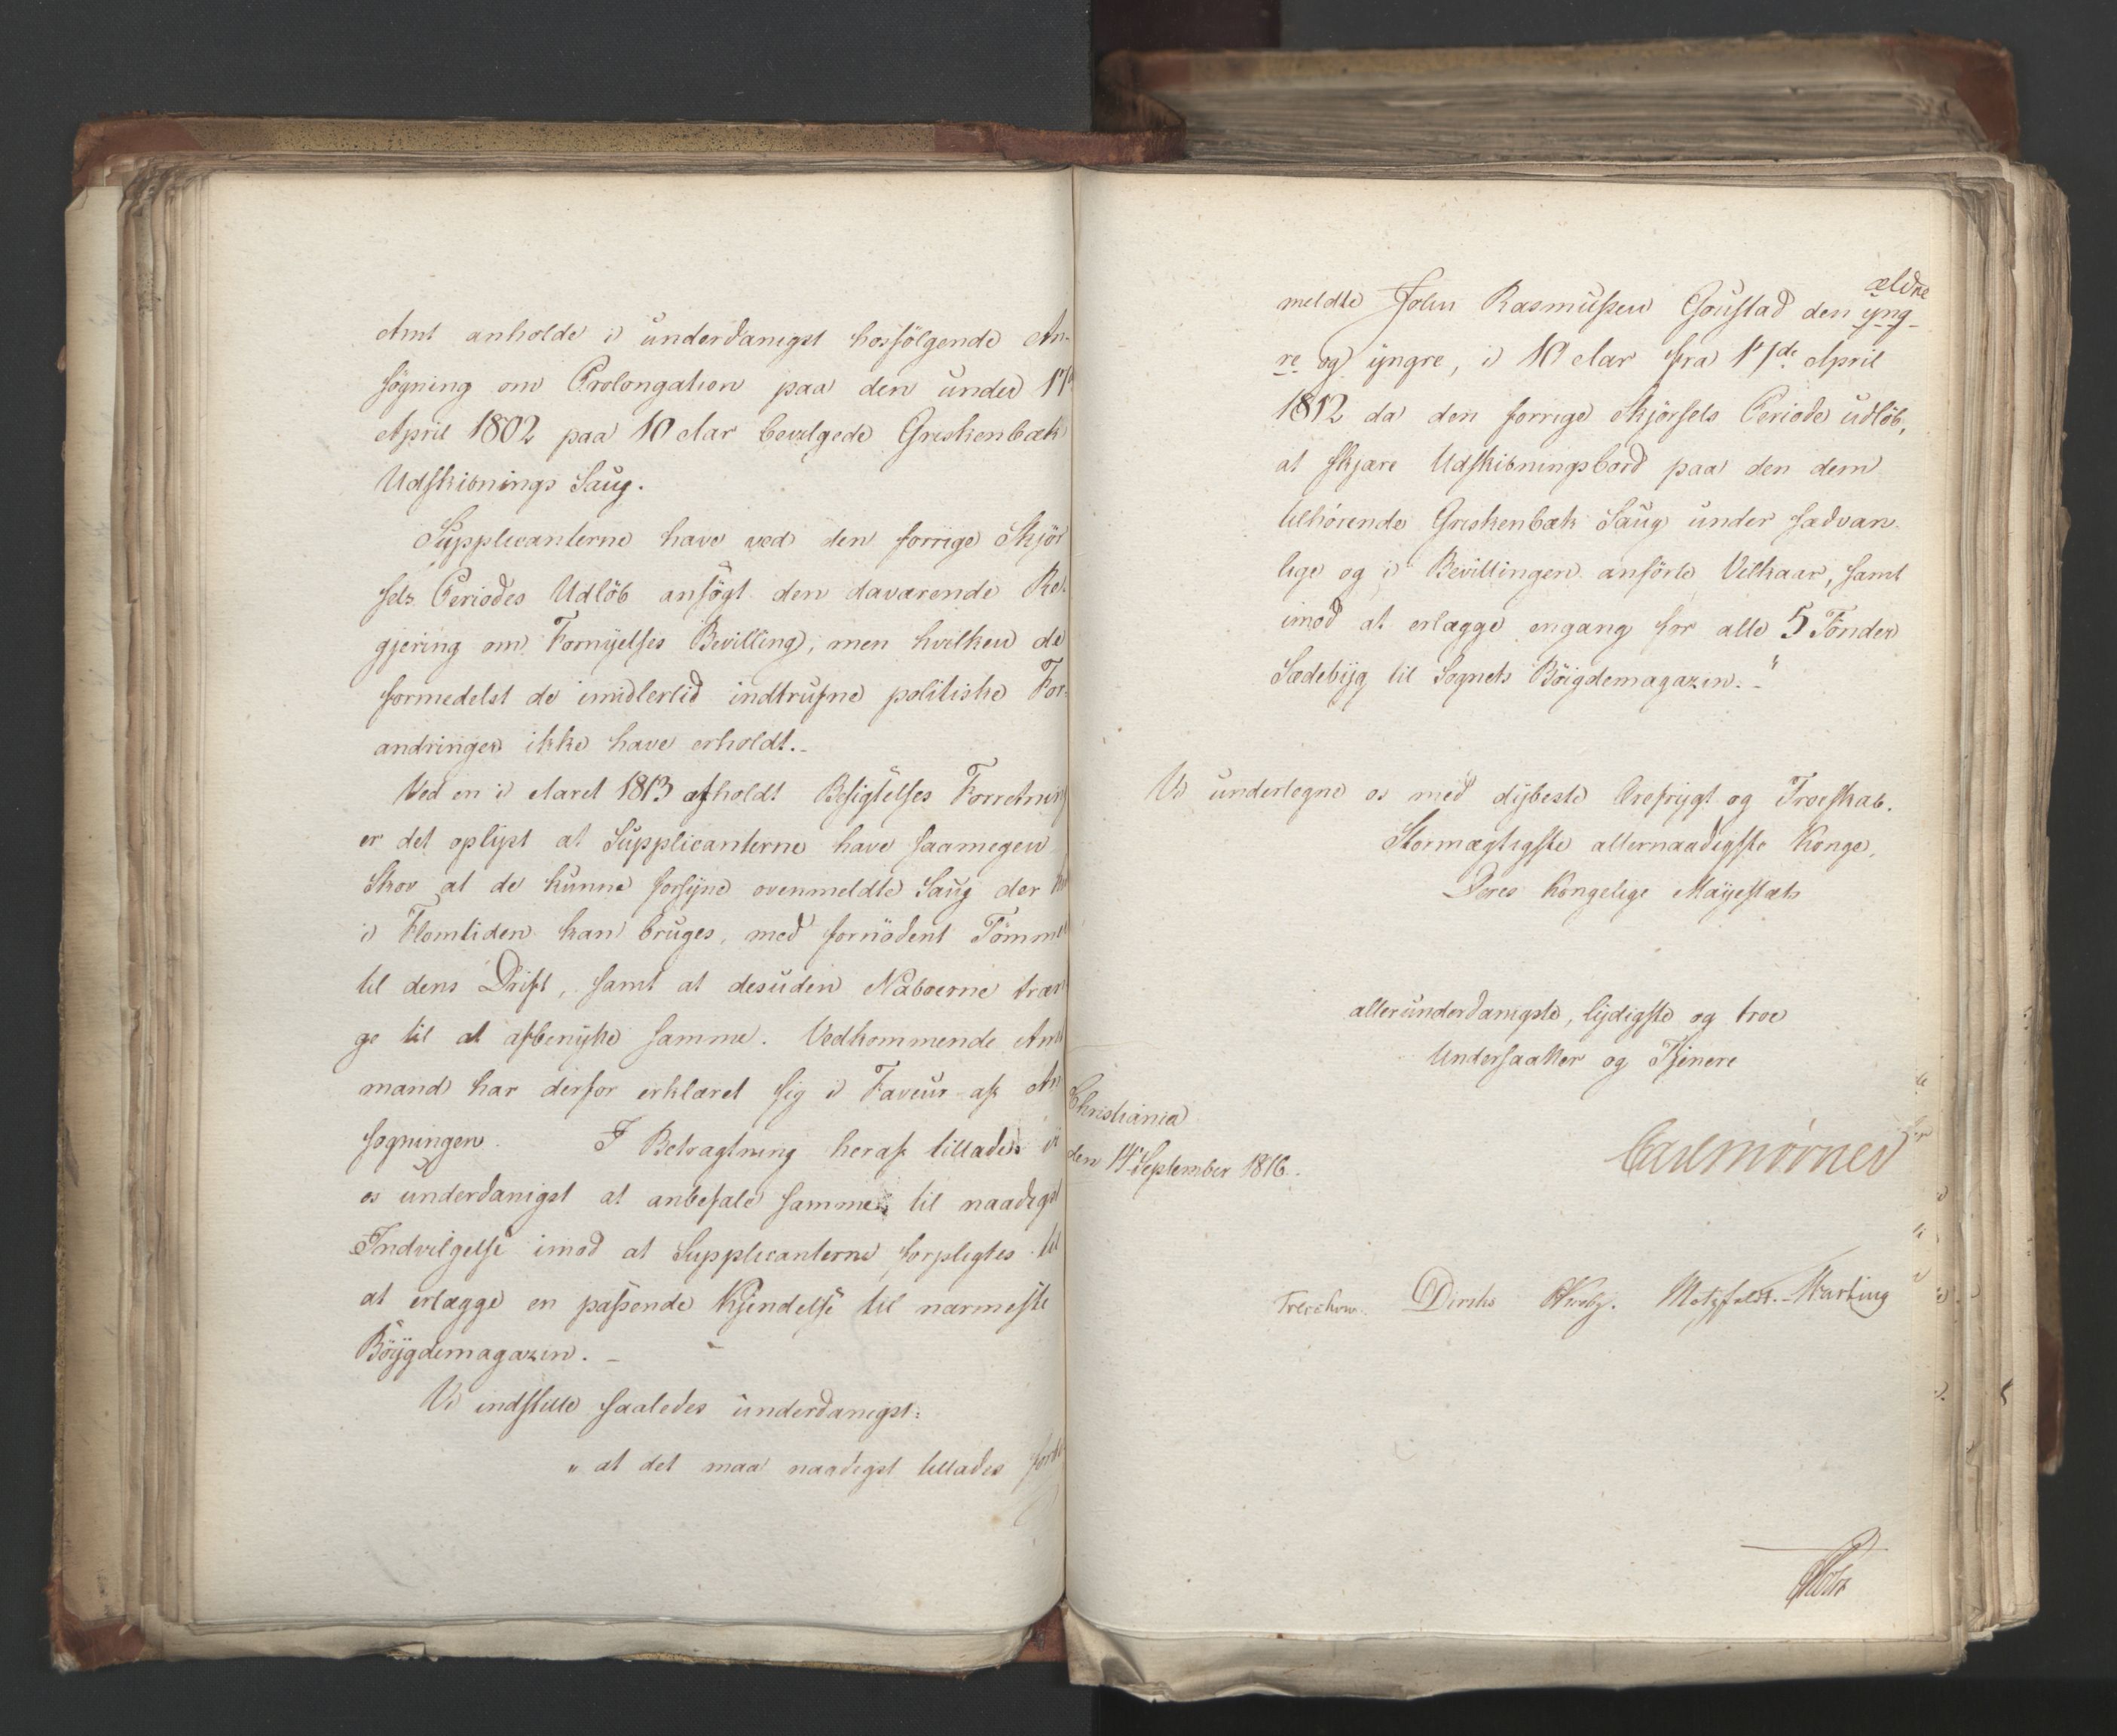 Amt anholde i underdanigst hosfölgende An-
sögning om Prolongation paa den under 17
April 1802 paa 10 Aar bevilgede Griskenbæk
Udskibnings Saug.
Supplicanterne have ved den forrige Skjör
sels Periodes Udlöb ansögt den daværende Re-
gjering om Fornyelses Bevilling, men hvilken de
formedelst de imidlertid indtrufne politiske For-
andringer ikke have erholdt.-
Ved en i Aaret 1813 afholdt Besigtelses Forretning
er det oplyst at Supplicanterne have saamegen
Skov at de kunne forsÿne ovenmeldte Saug der kun
i Flomtiden kan bruges, med fornödent Tömmer
til dens Drift, samt at desuden Naboerne træn
ge til at afbenytte samme. Vedkommende Amt
mand har derfor erklæret sig i Faveur af An
søgningen. I Betragtning heraf tillade vi
os underdanigst at anbefale samme til naadigst
Indvilgelse imod at Supplicanterne forpligtes til
at erlægge en passende Kjendelse til nærmeste
Böygdemagazin. -
Vi indstille saaledes underdanigst:
" at det maa naadigst tillades for
meldte John Rasmussen Goustad den yng- ældre
re og yngre, i 10 Aar fra 17de April
1812 da den forrige Skjörsels Periode udlöb,
at skjære Udskibningsbord paa den dem
tilhörende Griskenbæk Saug under sædvan
lige og i Bevillingen anförte Vilkaar, samt
imod at erlægge engang for alle 5 Tönder
Sædebyg til Sognets Böigdemagazin. - "
Vi undertegne os med dybeste Ærefrygt og Troeskab.
Stormægtigste allernaadigste Konge,
Deres Kongelige Mayestæts
allerunderdanigste, lydigste og troe
Undersaatter og Tjenere
Christiania
den 14 September 1816.
Carl Mörner
Treschow. Diriks Krebs. Motzfeldt. Harting